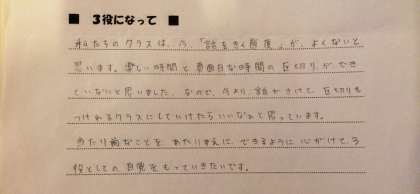 ■ 3役になって ■
私たちのクラスは、今、「話をきく態度」が、よくないと
思います。楽しい時間と真面目な時間の区切りができ
ていないと思いました。なので、今より、声かけをして、区切りを
つけれるクラスにしていけたらいいなぁと思っています。
当たり前なことを、あたりまえに、できるように心がけて、3
役としての自覚をもっていきたいです。